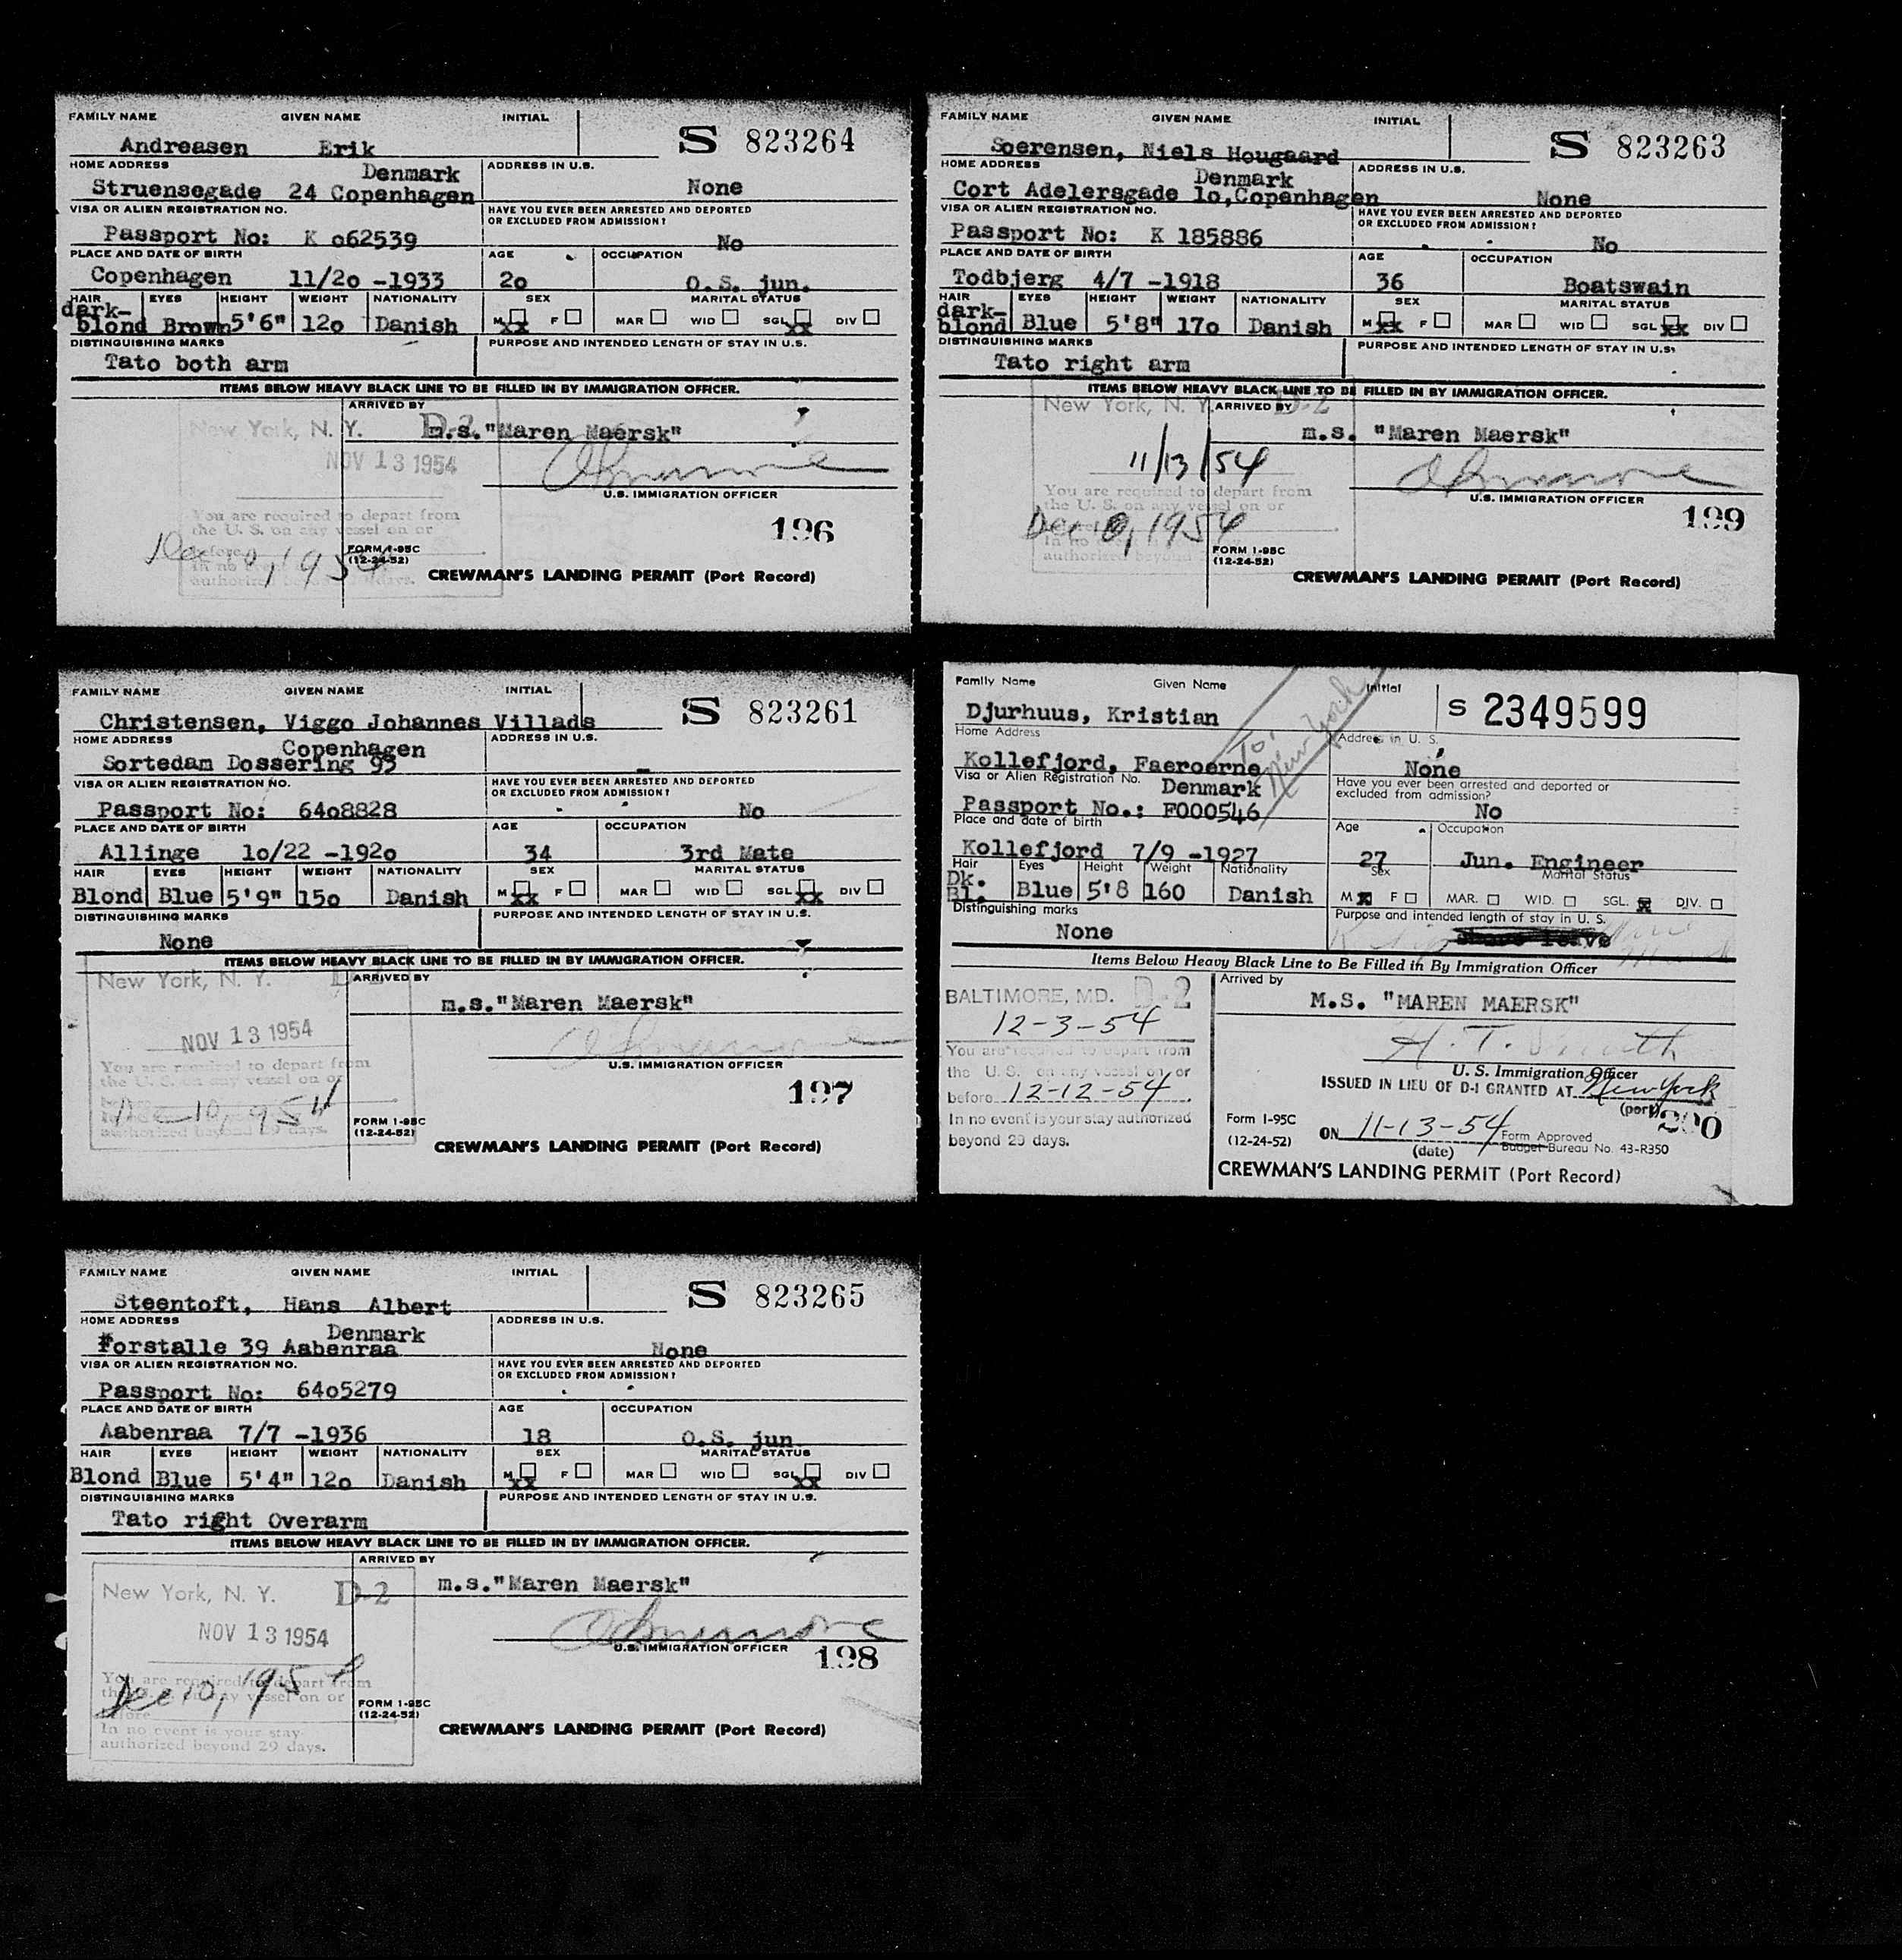 FAMILY NAME GIVEN NAME INITIAL
S 823264
Andreasen Erik
HOME ADDRESS ADDRESS IN U.S.
Denmark
Struensegade 24 Copenhagen None
VISA OR ALIEN REGISTRATION NO. HAVE YOU EVER BEEN ARRESTED AND DEPORTED
OR EXCLUDED FROM ADMISSION?
Passport No: K o62539 No
PLACE AND DATE OF BIRTH AGE OCCUPATION
Copenhagen 11/2o -1933 2o O.S. jun.
HAIR EYES HEIGHT WEIGHT NATIONALITY SEX MARITAL STATUS
dark-
blond Brown 5'6" 12o Danish M xx F MAR WID SGL xx DIV
DISTINGUISHING MARKS PURPOSE AND INTENDED LENGTH OF STAY IN U.S.
Tato both arm
ITEMS BELOW HEAVY BLACK LINE TO BE FILLED IN BY IMMIGRATION OFFICER.
ARRIVED BY
New York, N. Y. D-2 m.s."Maren Maersk"
NOV 13 1954
U.S. IMMIGRATION OFFICER
You are required to depart from
the U. S. on any vessel on or
before
Dec 10, 1954
196
FORM I-95C
(12-24-52)
CREWMAN'S LANDING PERMIT (Port Record)
FAMILY NAME GIVEN NAME INITIAL
S 823263
Soerensen, Niels Hougaard
HOME ADDRESS ADDRESS IN U.S.
Denmark
Cort Adelersgade 1o,Copenhagen None
VISA OR ALIEN REGISTRATION NO. HAVE YOU EVER BEEN ARRESTED AND DEPORTED
OR EXCLUDED FROM ADMISSION?
Passport No: K 185886 No
PLACE AND DATE OF BIRTH AGE OCCUPATION
Todbjerg 4/7 -1918 36 Boatswain
HAIR EYES HEIGHT WEIGHT NATIONALITY SEX MARITAL STATUS
dark-
blond Blue 5'8" 17o Danish M xx F MAR WID SGL xx DIV
DISTINGUISHING MARKS PURPOSE AND INTENDED LENGTH OF STAY IN U.S.
Tato right arm
ITEMS BELOW HEAVY BLACK LINE TO BE FILLED IN BY IMMIGRATION OFFICER.
New York, N. Y. ARRIVED BY D-2
m.s. "Maren Maersk"
11/13/54
U.S. IMMIGRATION OFFICER
You are required to depart from
the U. S. on any vessel on or
Dec 10, 1954
199
FORM I-95C
(12-24-52)
CREWMAN'S LANDING PERMIT (Port Record)
FAMILY NAME GIVEN NAME INITIAL
S 823261
Christensen, Viggo Johannes Villads
HOME ADDRESS ADDRESS IN U.S.
Copenhagen
Sortedam Dossering 95
VISA OR ALIEN REGISTRATION NO. HAVE YOU EVER BEEN ARRESTED AND DEPORTED
OR EXCLUDED FROM ADMISSION?
Passport No: 64o8828 No
PLACE AND DATE OF BIRTH AGE OCCUPATION
Allinge 1o/22 -192o 34 3rd Mate
HAIR EYES HEIGHT WEIGHT NATIONALITY SEX MARITAL STATUS
Blond Blue 5'9" 15o Danish M xx F MAR WID SGL xx DIV
DISTINGUISHING MARKS PURPOSE AND INTENDED LENGTH OF STAY IN U.S.
None
ITEMS BELOW HEAVY BLACK LINE TO BE FILLED IN BY IMMIGRATION OFFICER.
New York, N. Y. ARRIVED BY
m.s."Maren Maersk"
NOV 13 1954
U.S. IMMIGRATION OFFICER
You are required to depart from
the U. S. on any vessel on or
Dec 10, 1954
authorized beyond 29 days.
197
FORM I-95C
(12-24-52)
CREWMAN'S LANDING PERMIT (Port Record)
Family Name Given Name Initial
S 2349599
Djurhuus, Kristian
To New York
Home Address Address in U. S.
Kollefjord, Faeroerne None
Visa or Alien Registration No. Have you ever been arrested and deported or
excluded from admission?
Denmark
Passport No.: F000546 No
Place and date of birth Age Occupation
Kollefjord 7/9 -1927 27 Jun. Engineer
Hair Eyes Height Weight Nationality Sex Marital Status
Dk.
Bl. Blue 5'8 160 Danish M x F MAR. WID. SGL. x DIV.
Distinguishing marks Purpose and intended length of stay in U. S.
None shore leave
Items Below Heavy Black Line to Be Filled in By Immigration Officer
BALTIMORE, MD. D-2 Arrived by
M.S. "MAREN MAERSK"
12-3-54
H. T. Smith
You are required to depart from
the U. S. on any vessel on or
before 12-12-54
In no event is your stay authorized
beyond 29 days.
U. S. Immigration Officer
ISSUED IN LIEU OF D-1 GRANTED AT New York
(port)
200
Form I-95C
(12-24-52)
ON 11-13-54
(date)
Form Approved
Budget Bureau No. 43-R350
CREWMAN'S LANDING PERMIT (Port Record)
FAMILY NAME GIVEN NAME INITIAL
S 823265
Steentoft, Hans Albert
HOME ADDRESS ADDRESS IN U.S.
Denmark
Forstalle 39 Aabenraa None
VISA OR ALIEN REGISTRATION NO. HAVE YOU EVER BEEN ARRESTED AND DEPORTED
OR EXCLUDED FROM ADMISSION?
Passport No: 64o5279
PLACE AND DATE OF BIRTH AGE OCCUPATION
Aabenraa 7/7 -1936 18 O.S. jun.
HAIR EYES HEIGHT WEIGHT NATIONALITY SEX MARITAL STATUS
Blond Blue 5'4" 12o Danish M xx F MAR WID SGL xx DIV
DISTINGUISHING MARKS PURPOSE AND INTENDED LENGTH OF STAY IN U.S.
Tato right Overarm
ITEMS BELOW HEAVY BLACK LINE TO BE FILLED IN BY IMMIGRATION OFFICER.
ARRIVED BY
New York, N. Y. D-2 m.s."Maren Maersk"
NOV 13 1954
U.S. IMMIGRATION OFFICER
198
You are required to depart from
the U. S. on any vessel on or
before
Dec 10, 1954
In no event is your stay
authorized beyond 29 days.
FORM I-95C
(12-24-52)
CREWMAN'S LANDING PERMIT (Port Record)